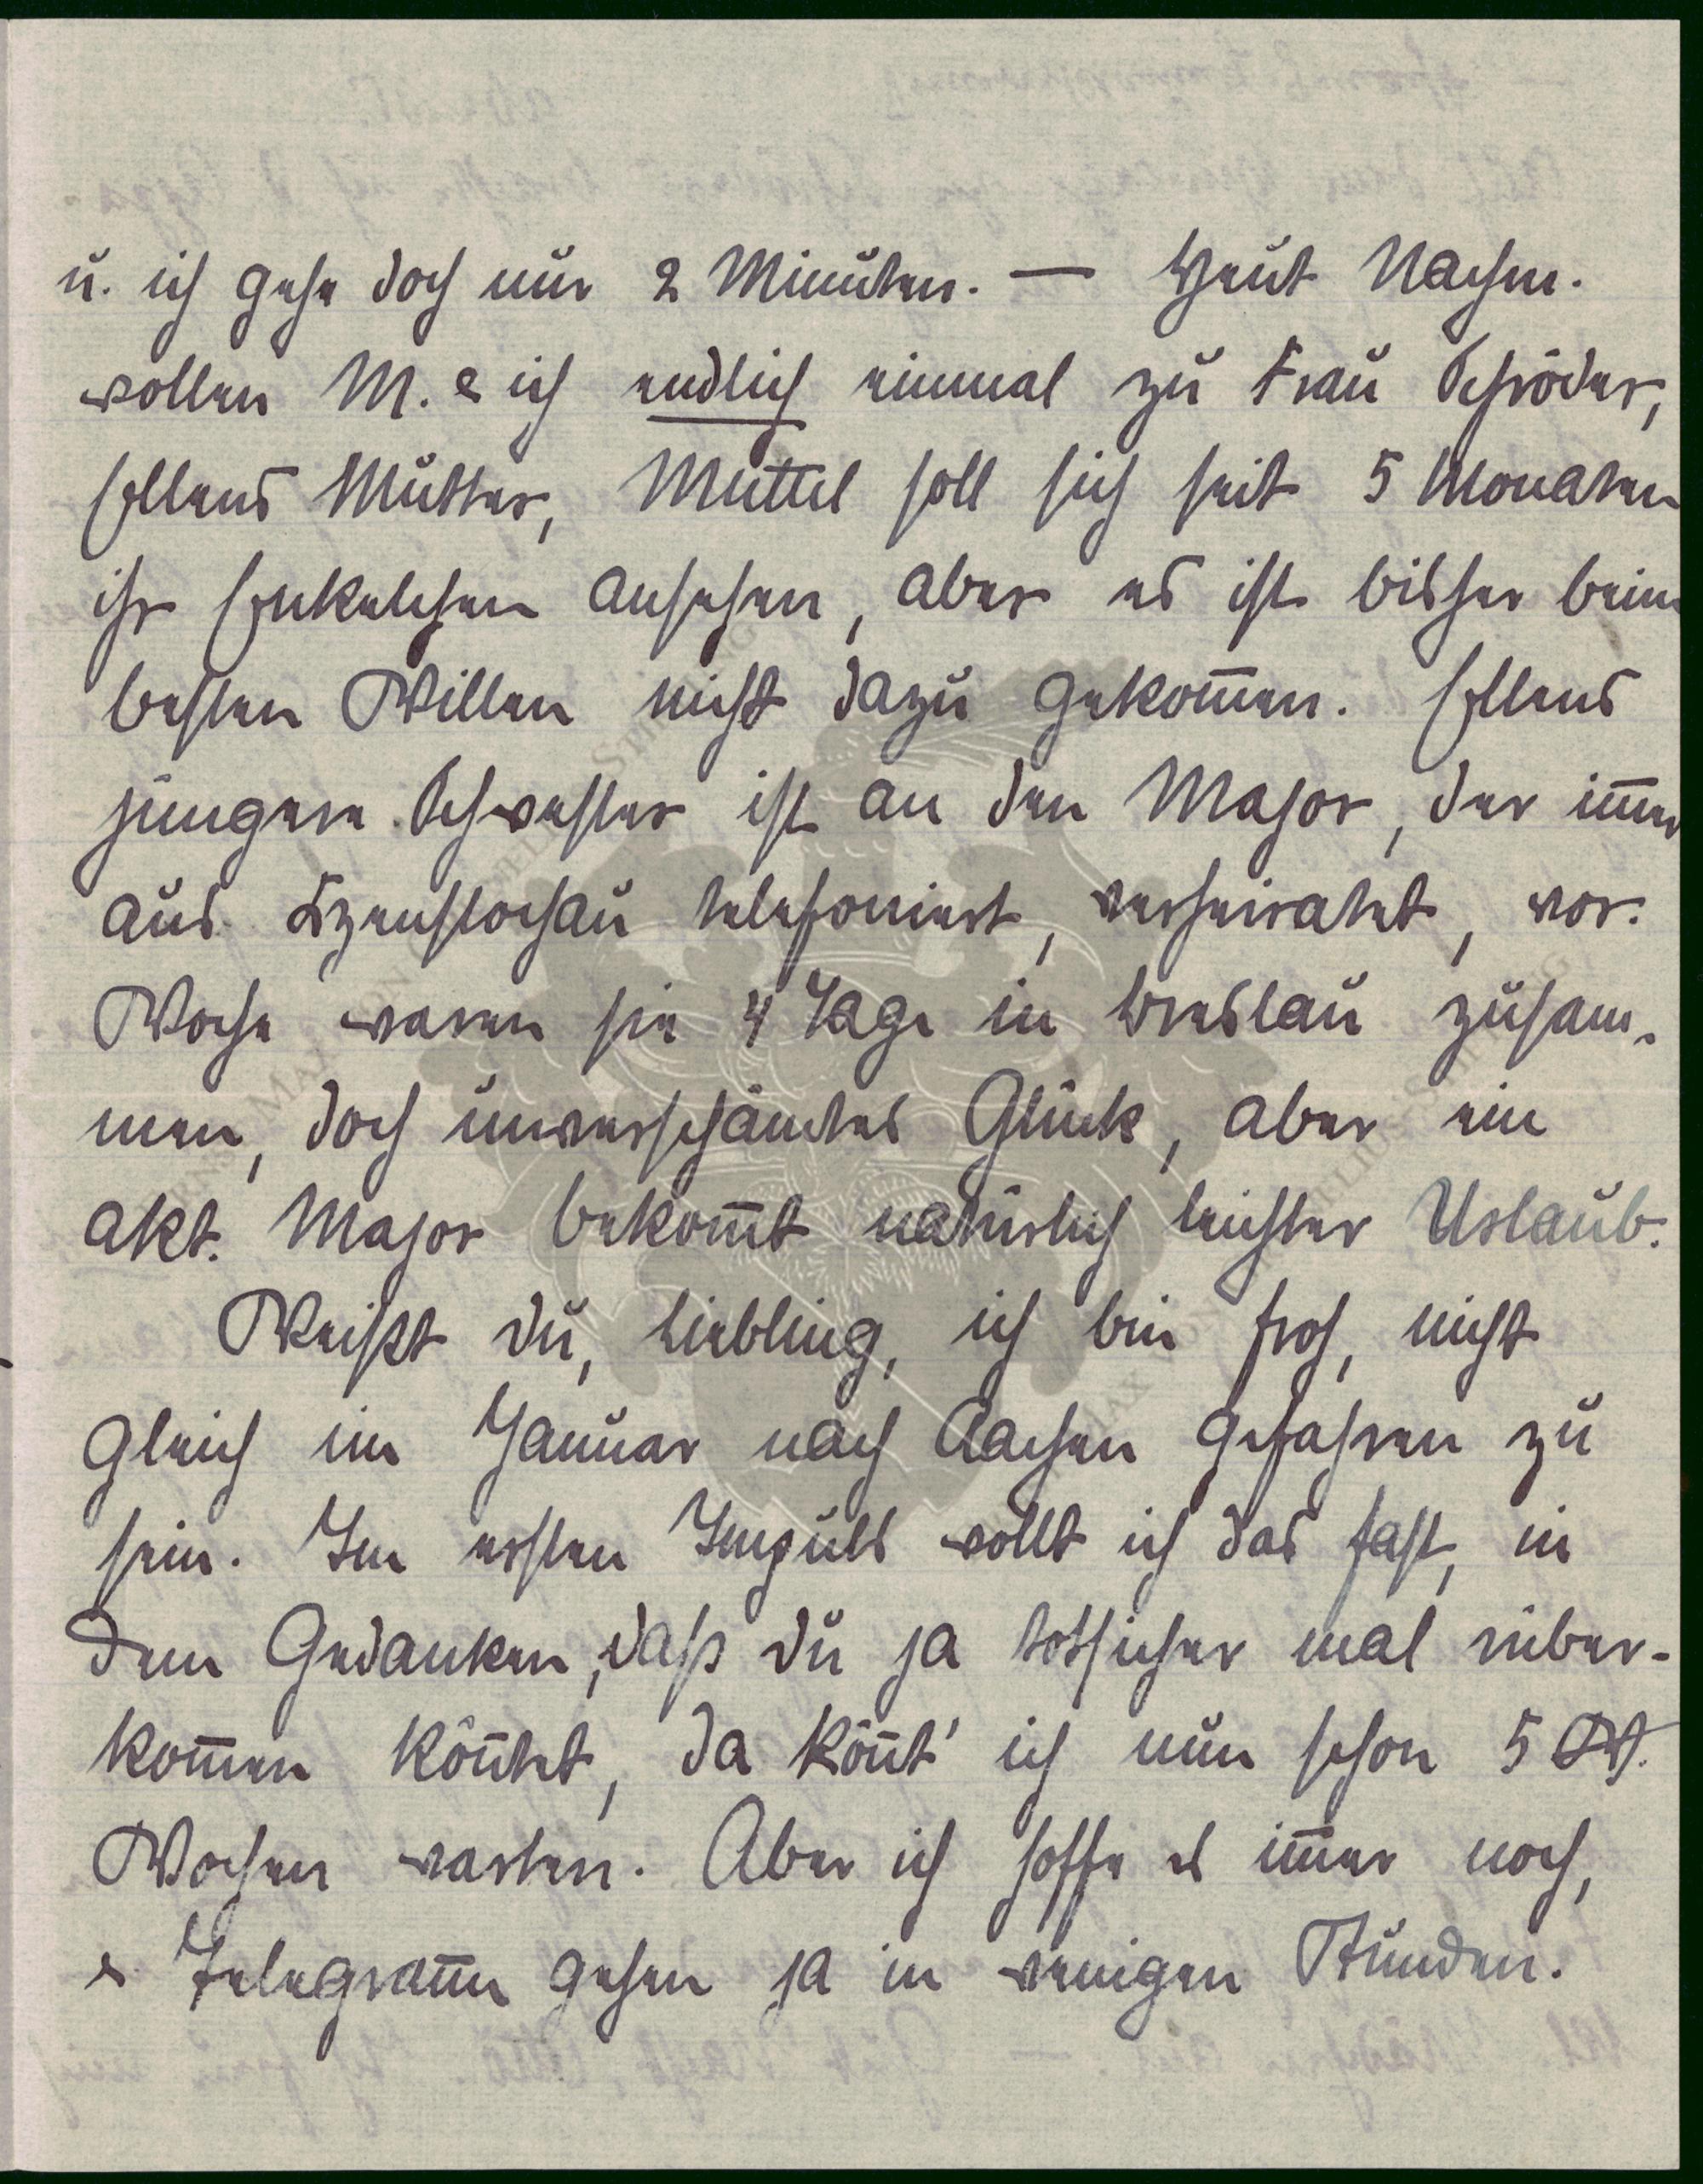 u. ich gehe doch nur 2 Minuten. — Heut Nachm.
wollen M. & ich endlich einmal zu Frau Schröder,
Ellens Mutter, Muttel soll sich seit 5 Monaten
ihr Enkelchen ansehen, aber es ist bisher beim
besten Willen nicht dazu gekom̅en. Ellens
jüngere Schwester ist an den Major, der im̅er
aus Tzenstochau telefoniert, verheiratet, vor.
Woche waren sie 4 Tage in Breslau zusam-
men, doch unverschämtes Glück, aber ein
akt. Major bekom̅t natürlich leichter Urlaub.
Weißt du, Liebling, ich bin froh, nicht
gleich im Januar nach Aachen gefahren zu
sein. Im ersten Impuls wollt ich das fast, in
dem Gedanken, daß du ja totsicher mal rüber-
kom̅en kön̅test, da kön̅t' ich nun schon 5
Wochen warten. Aber ich hoffe es im̅er noch,
& Telegram̅e gehen ja in wenigen Stunden.